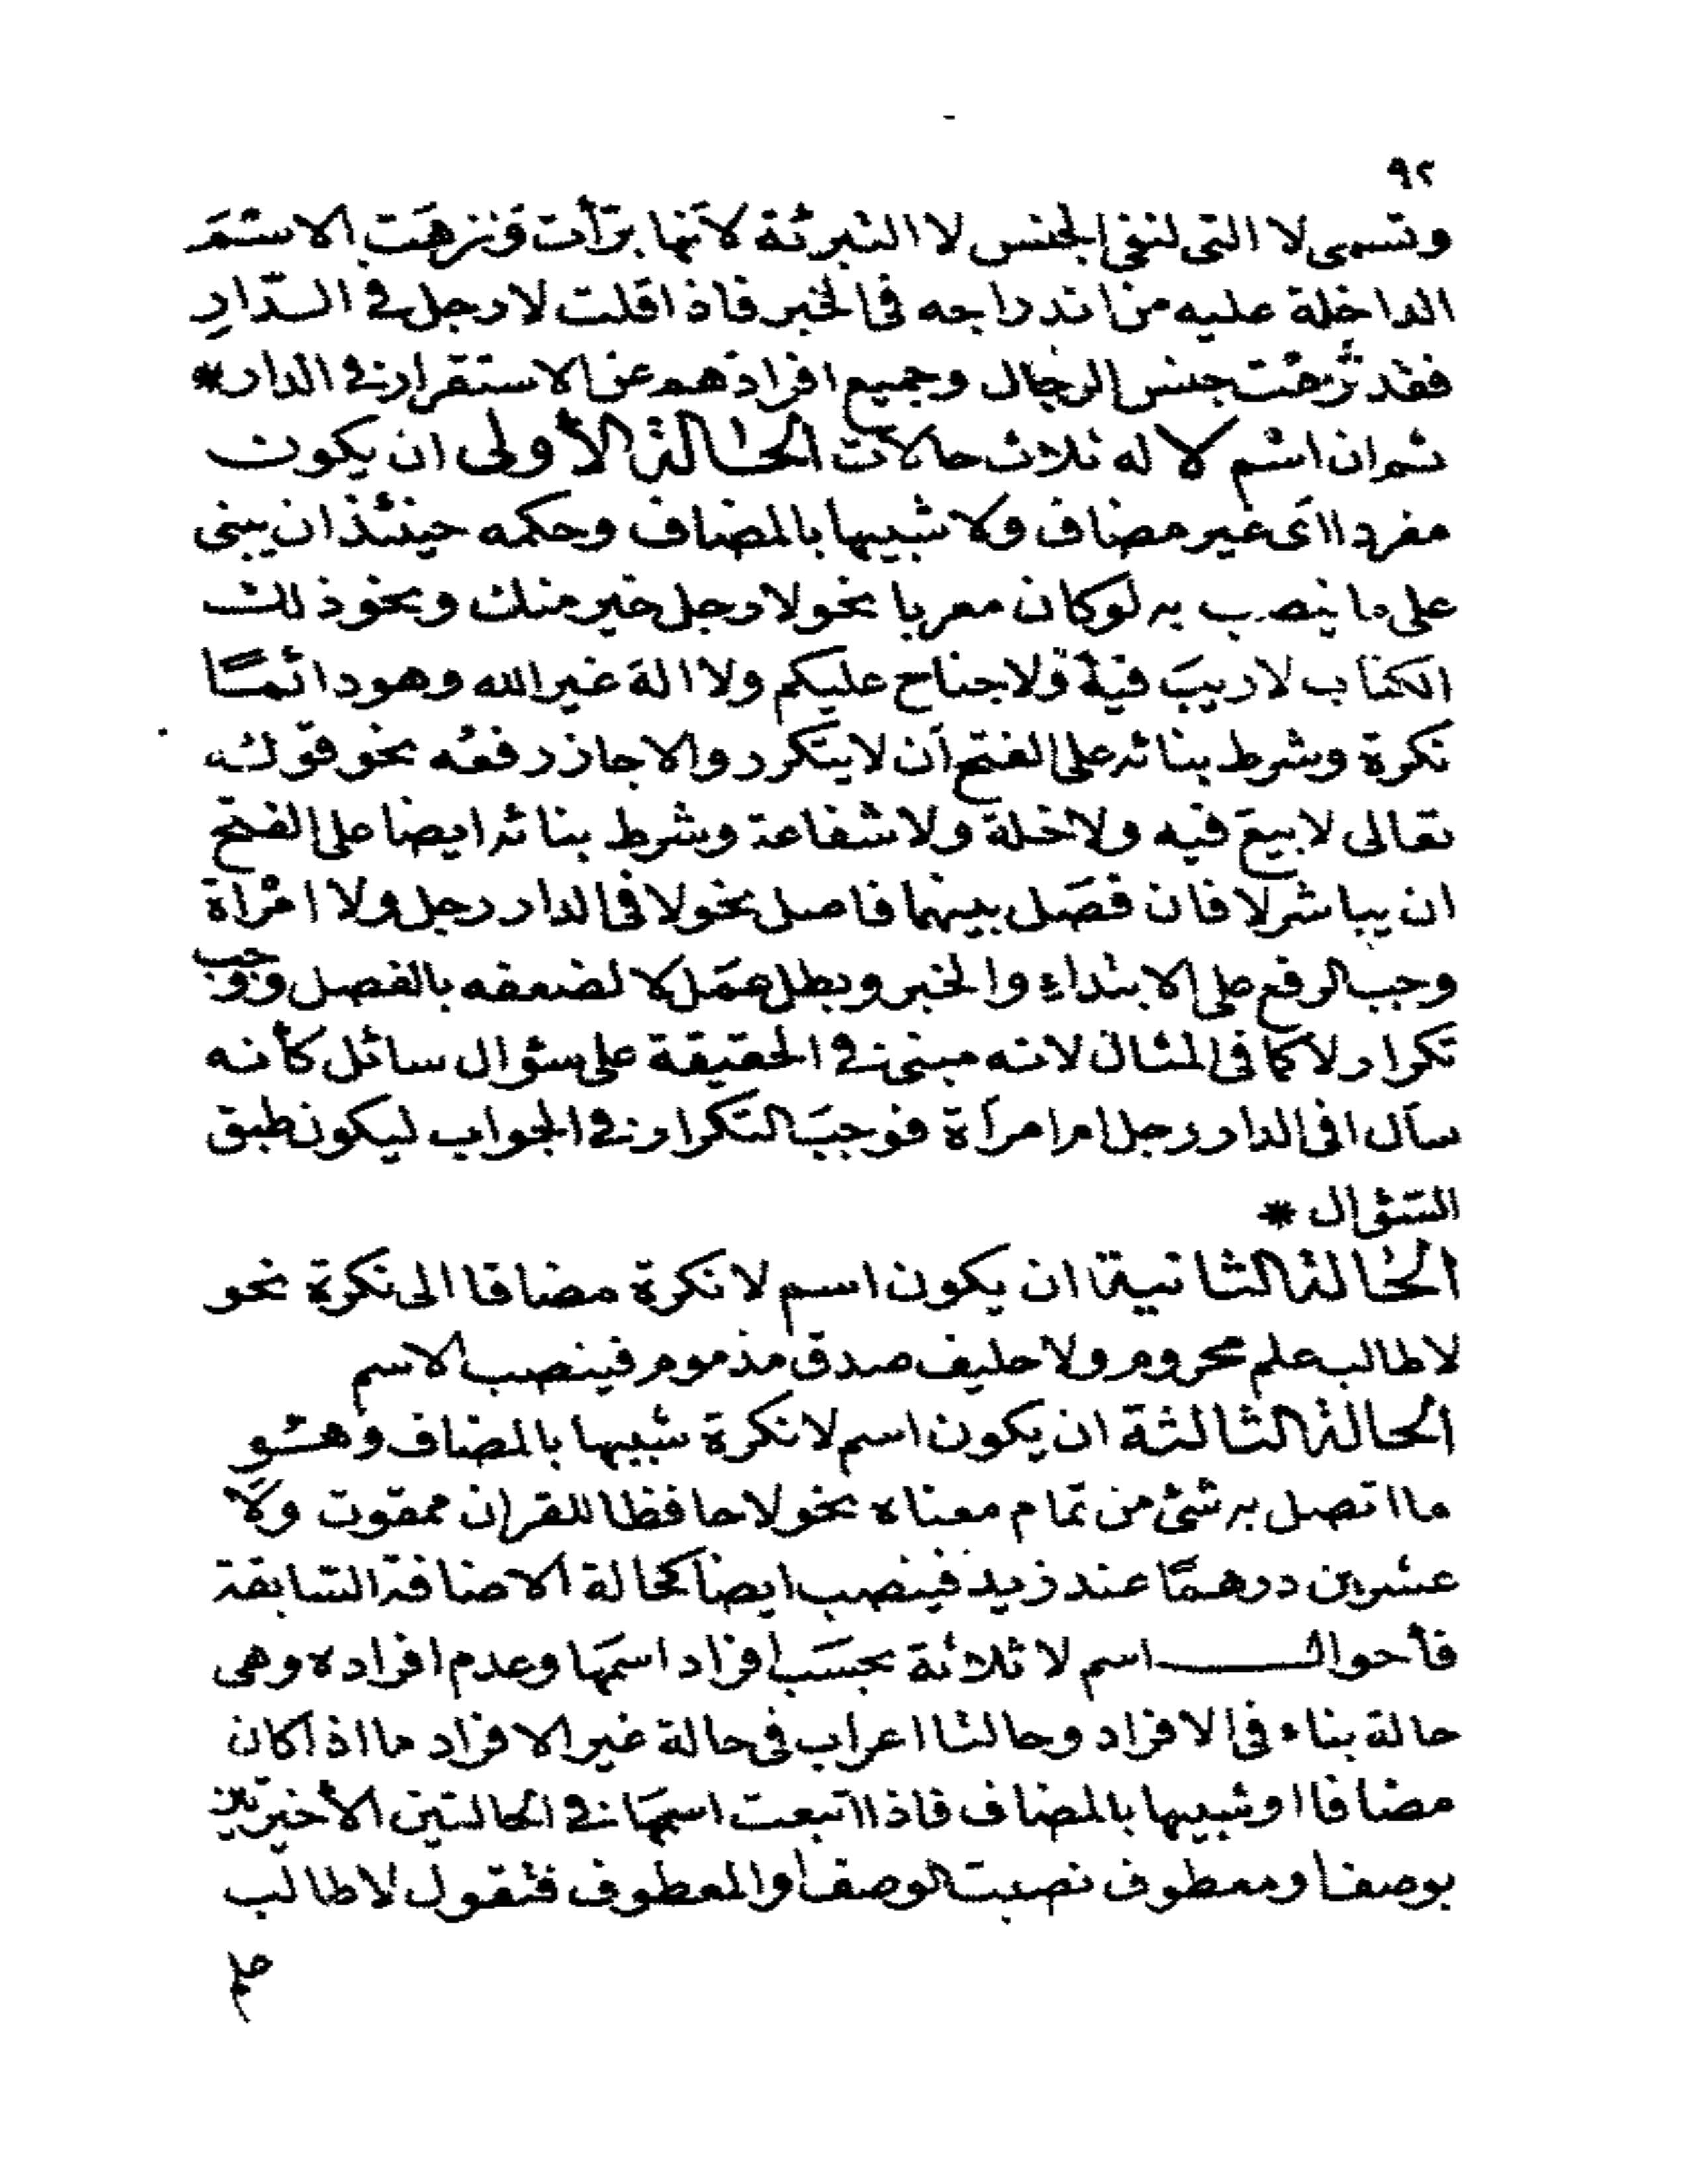 ٩٢
وتسمى لا التى لنفى الجنس لا التبرئة لأنها برّأت ونزهت الاسم
الداخلة عليه من اندراجه فى الخبر فاذا قلت لا رجل فى الدّارِ
فقد نزهت جنس الرجال وجميع افرادهم عن الاستقرار فى الدار *
ثم ان اسم لا له ثلاث حالات الحالة الأولى ان يكون
مفردا اى غير مضاف ولا شبيها بالمضاف وحكمه حينئذ ان يبنى
على ما ينصب به لو كان معربا نحو لا رجل خير منك ونحو ذلك
الكتاب لا ريبَ فيه ولا جناح عليكم ولا اله غير الله وهو دائمًا
نكرة وشرط بنائه على الفتح أن لا يتكرر والا جاز رفعه نحو قوله
تعالى لا بيع فيه ولا خلة ولا شفاعة وشرط بنائه ايضا على الفتح
ان يباشر لا فان فصَل بينهما فاصل نحو لا فى الدار رجل ولا امرأة
وجب الرفع على الابتداء والخبر وبطل عمَل لا لضعفه بالفصل ووجب
تكرار لا كما فى المثال لانه مبنى فى الحقيقة على سؤال سائل كأنه
سأل افى الدار رجل ام امرأة فوجبَ التكرار فى الجواب ليكون طبق
السّؤال *
الحالة الثانية ان يكون اسم لا نكرة مضافا الى نكرة نحو
لا طالب علم محروم ولا حليف صدق مذموم فينصب الاسم
الحالة الثالثة ان يكون اسم لا نكرة شبيها بالمضاف وهو
ما اتصل به شئ من تمام معناه نحو لا حافظا للقران ممقوت ولا
عشرين درهمًا عند زيد فينصب ايضا كحالة الاضافة السّابقة
فأحوال اسم لا ثلاثة بحسَب افراد اسمها وعدم افراده وهى
حالة بناء فى الافراد وحالتا اعراب فى حالة غير الافراد ما اذا كان
مضافا او شبيها بالمضاف فاذا اتبعت اسمهَا فى الحالتين الأخيرتين
بوصف او معطوف نصبت الوصف او المعطوف فتقول لا طالب
علم